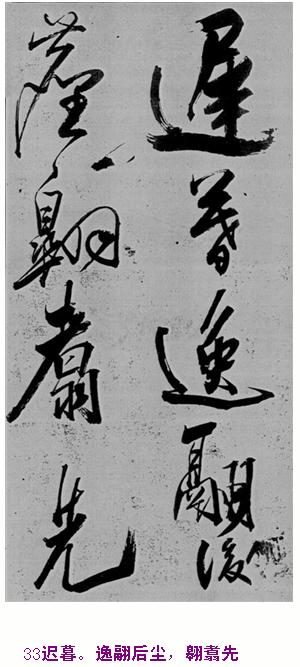 遲暮逸翮後
塵翺翥先
33迟暮。逸翮后尘，翱翥先